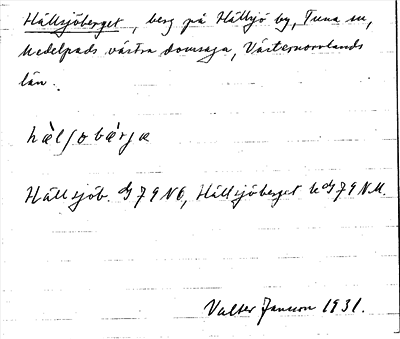 Hällsjöberget, berg på Hällsjö by, Tuna sn,
Medelpads västra domsaga, Västernorrlands
län.
hälsjobärja
Hällsjöb. G 79 NO, Hällsjöberget G 79 NU.
Valter Jansson 1931.